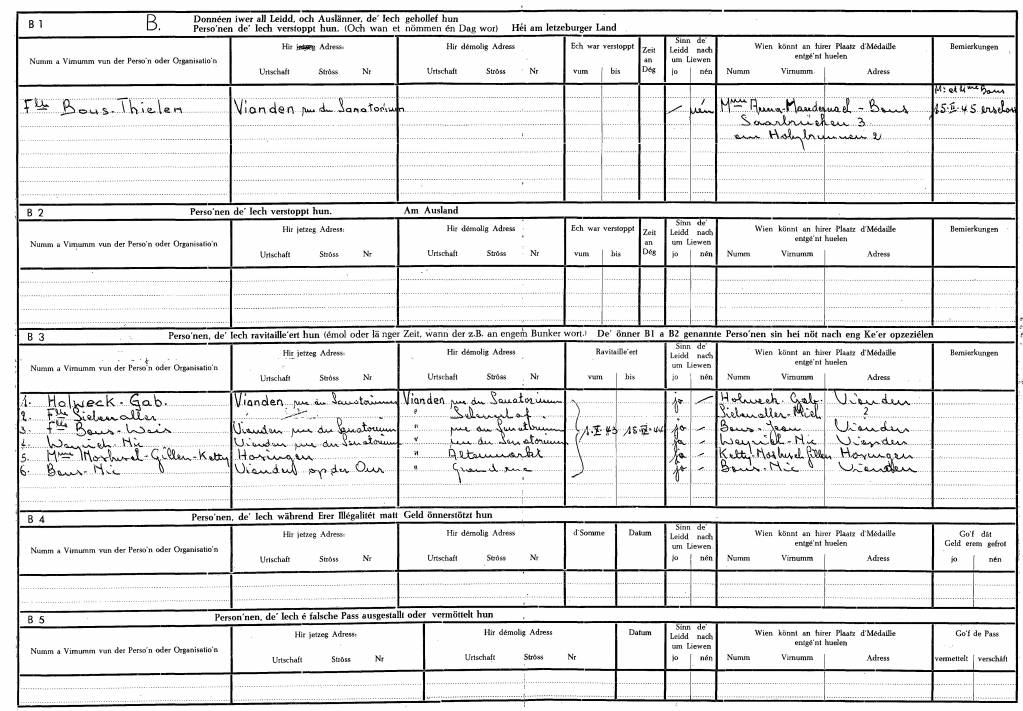 B 1 B. Donnéen iwer all Leidd, och Auslänner, de' Iech gehollef hun
Perso'nen de' Iech verstoppt hun. (Och wan et nömmen én Dag wor) Héi am letzeburger Land
Numm a Virnumm vun der Perso'n oder Organisatio'n
Hir jetzeg Adress:
Urtschaft Ströss Nr
Hir démolig Adress
Urtschaft Ströss Nr
Ech war verstoppt
vum bis
Zeit an Dég
Sinn de' Leidd nach um Liewen
jo nén
Wien könnt an hirer Plaatz d'Médaille entgé'nt huelen
Numm Virnumm Adress
Bemierkungen
M. et Mme Bous
Flle Bous-Thielen Vianden rue du Sanatorium — nén Mme Anna-Mandernach-Bous 15.II.45 erschoss
Saarbrücken 3
am Holzbrunnen 2
B 2 Perso'nen de' Iech verstoppt hun. Am Ausland
Numm a Virnumm vun der Perso'n oder Organisatio'n
Hir jetzeg Adress:
Urtschaft Ströss Nr
Hir démolig Adress:
Urtschaft Ströss Nr
Ech war verstoppt
vum bis
Zeit an Dég
Sinn de' Leidd nach um Liewen
jo nén
Wien könnt an hirer Plaatz d'Médaille entgé'nt huelen
Numm Virnumm Adress
Bemierkungen
B 3 Perso'nen, de' Iech ravitaille'ert hun (émol oder lä nger Zeit, wann der z.B. an engem Bunker wort.) De' önner B1 a B2 genannte Perso'nen sin hei nöt nach eng Ke'er opzeziélen
Numm a Virnumm vun der Perso'n oder Organisatio'n
Hir jetzeg Adress:
Urtschaft Ströss Nr
Hir démolig Adress
Urtschaft Ströss Nr
Ravitaille'ert
vum bis
Sinn de' Leidd nach um Liewen
jo nén
Wien könnt an hirer Plaatz d'Médaille entgé'nt huelen
Numm Virnumm Adress
Bemierkungen
1. Holweck-Gab. Vianden rue du Sanatorium Vianden rue du Sanatorium jo — Holweck-Gab. Vianden
2. Flle Siebenaller " Siebenaller-Mich ?
3. Flle Bous-Weis Vianden rue du Sanatorium " rue du Sanatorium 15.IX.44 jo — Bous-Jean Vianden
4. Weyrich-Nic Vianden rue du Sanatorium " rue du Sanatorium jo — Weyrich-Nic Vianden
5. Mme -Gillen-Ketty Hosingen " Altenmarkt jo — Ketty Gillen Hosingen
6. Bous-Nic Vianden op der Our " Grand rue jo — Bous-Nic Vianden
B 4 Perso'nen, de' Iech während Erer Illégalitét matt Geld önnerstötzt hun
Numm a Virnumm vun der Perso'n oder Organisatio'n
Hir jetzeg Adress:
Urtschaft Ströss Nr
Hir démolig Adress:
Urtschaft Ströss Nr
d'Somme
Datum
Sinn de' Leidd nach um Liewen
jo nén
Wien könnt an hirer Plaatz d'Médaille entgé'nt huelen
Numm Virnumm Adress
Go'f dât Geld erem gefrot
jo nén
B 5 Person'nen, de' Iech é falsche Pass ausgestallt oder vermöttelt hun
Numm a Virnumm vun der Perso'n oder Organisatio'n
Hir jetzeg Adress:
Urtschaft Ströss Nr
Hir démolig Adress:
Urtschaft Ströss Nr
Datum
Sinn de' Leidd nach um Liewen
jo nén
Wien könnt an hirer Plaatz d'Médaille entgé'nt huelen
Numm Virnumm Adress
Go'f de Pass
vermettelt verschâft